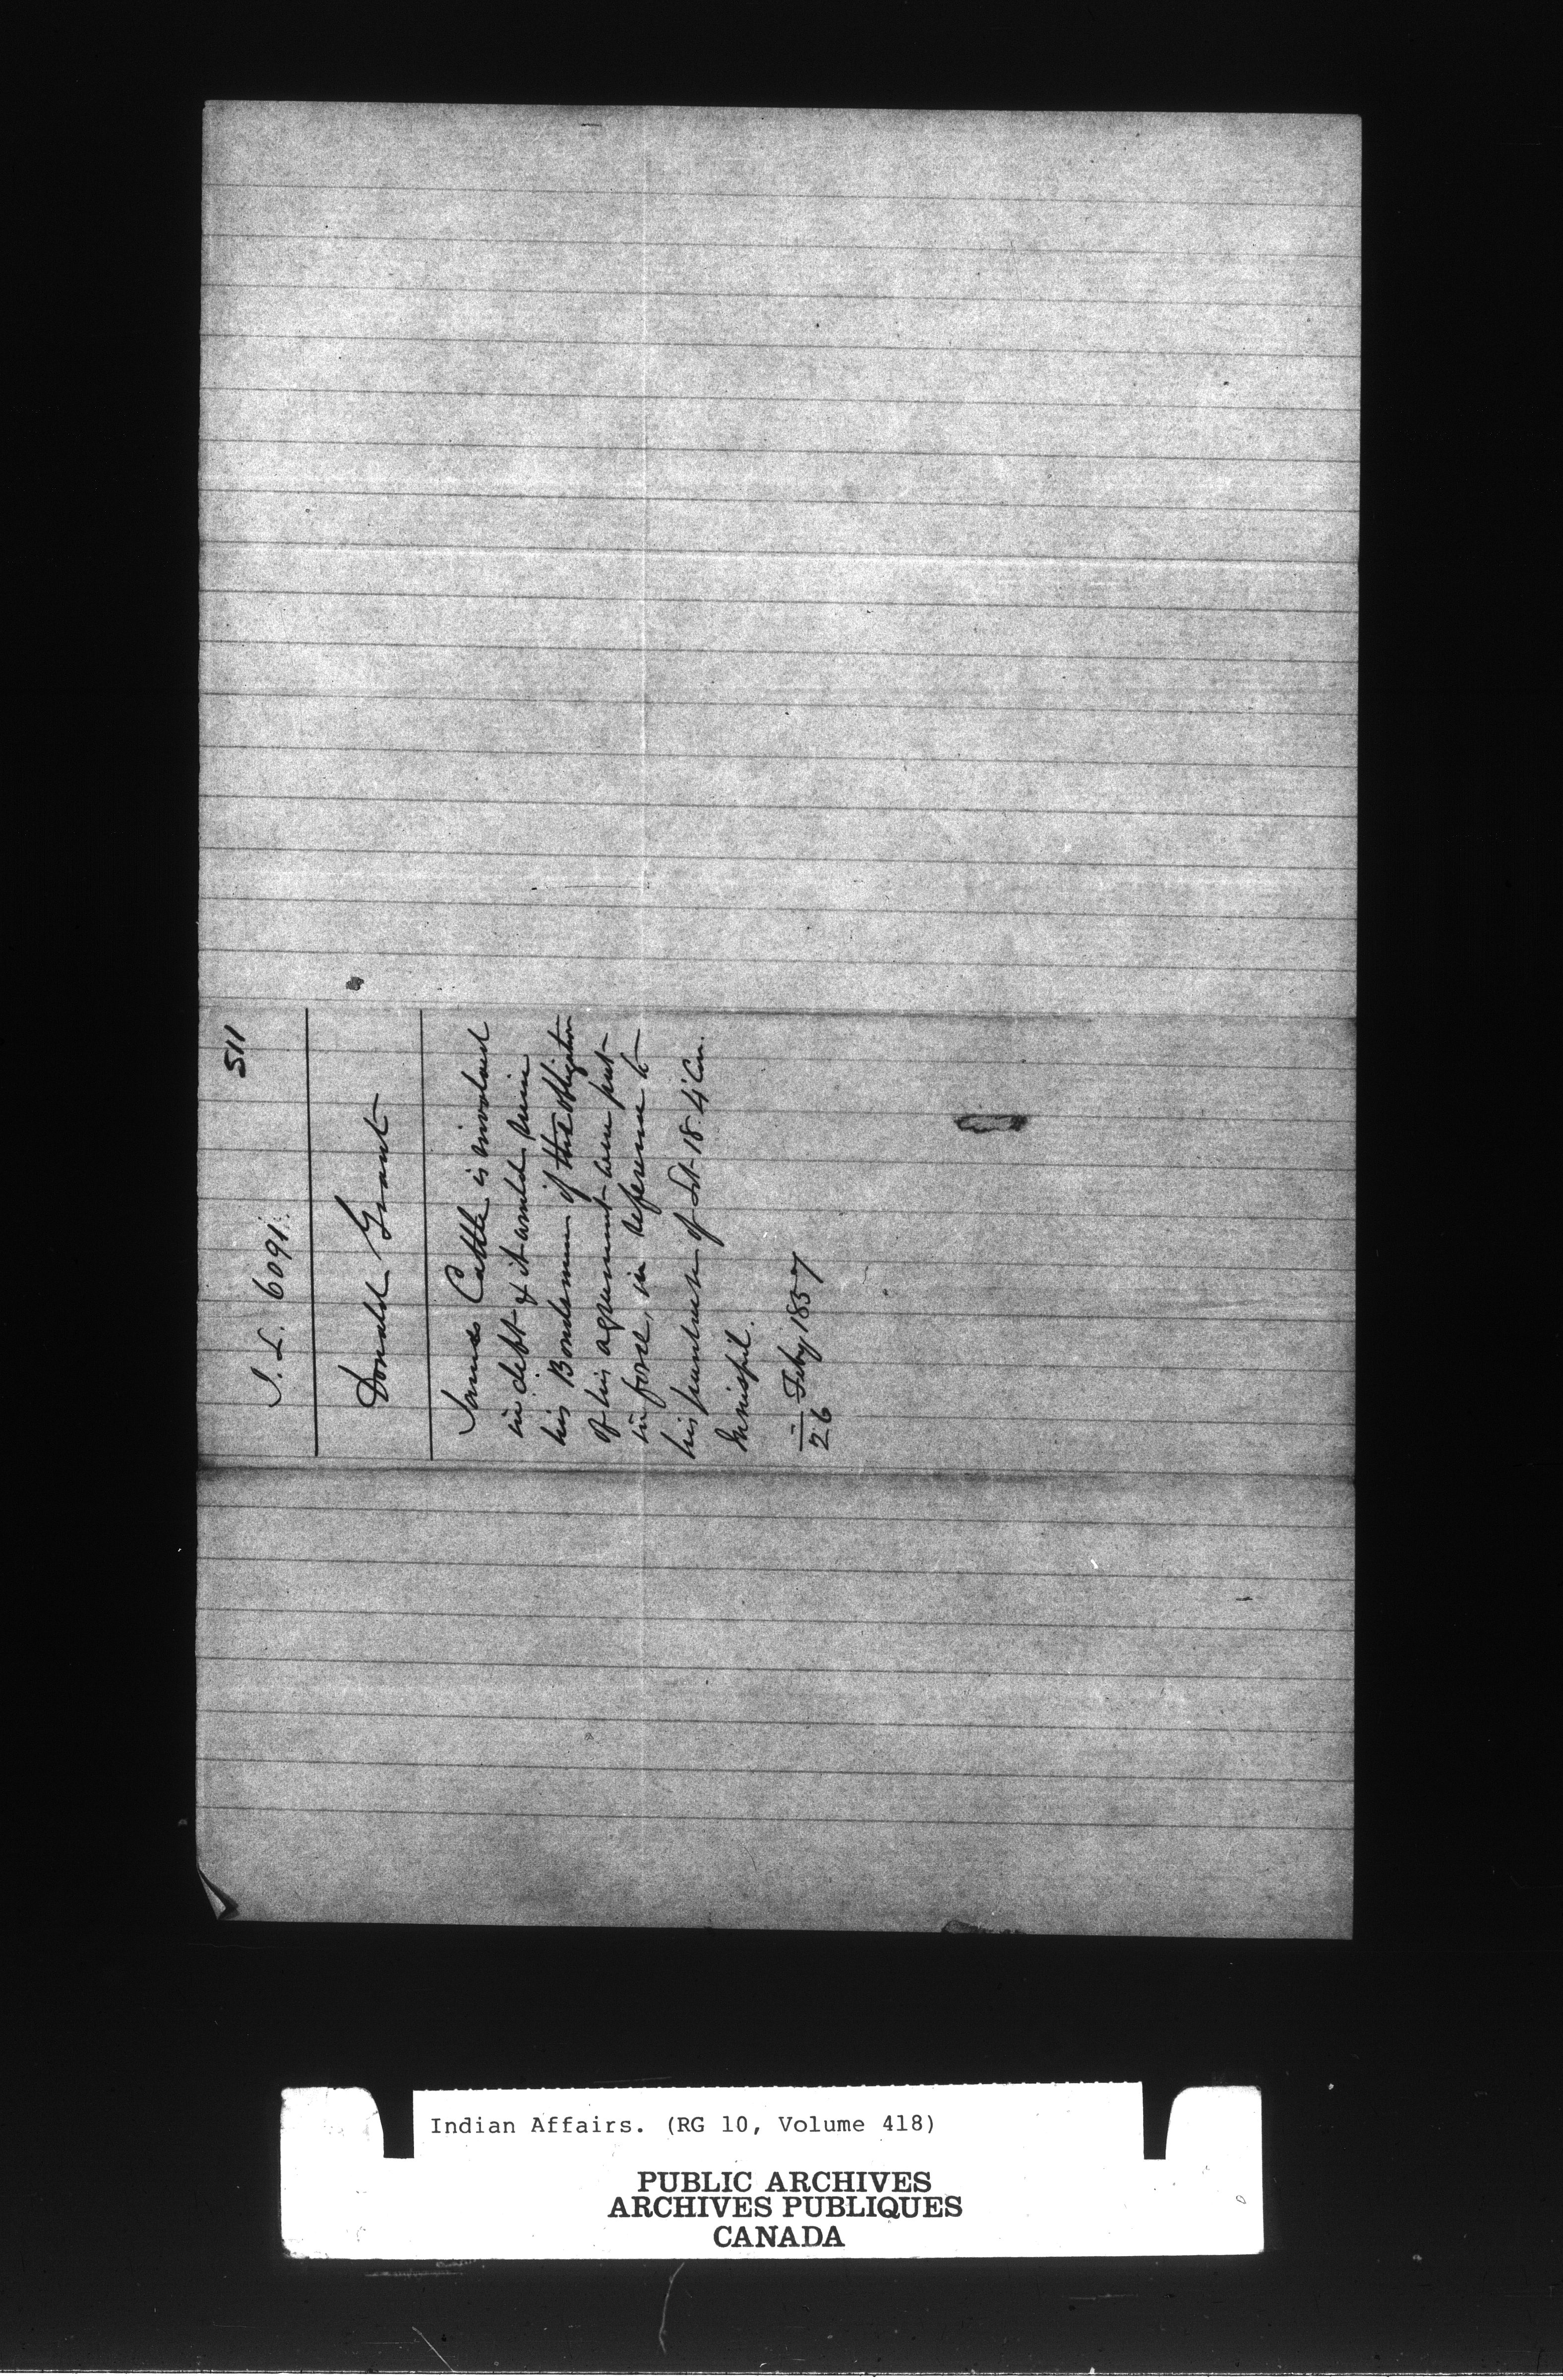 511
I. L. 6091.
Donald Grant
James Cattle is involved
in debt & it would ruin
his Bondsmen if the obligation
of his agreement were put
in force, in reference to
his purchase of Lot 18. 4 Con.
Innisfil.
26 Feby 1857
Indian Affairs. (RG 10, Volume 418)
PUBLIC ARCHIVES
ARCHIVES PUBLIQUES
CANADA